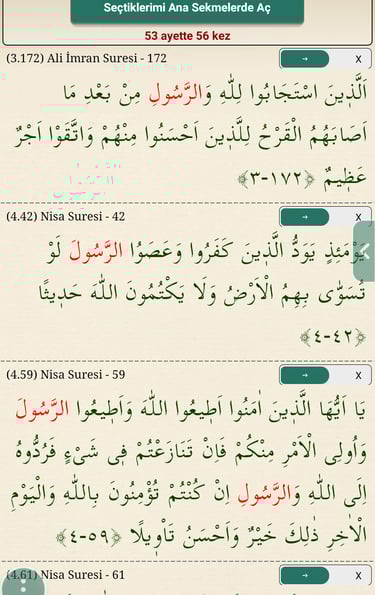 Seçtiklerimi Ana Sekmelerde Aç
53 ayette 56 kez
(3.172) Ali İmran Suresi - 172 → X
اَلَّذ۪ينَ اسْتَجَابُوا لِلّٰهِ وَالرَّسُولِ مِنْ بَعْدِ مَا
اَصَابَهُمُ الْقَرْحُ لِلَّذ۪ينَ اَحْسَنُوا مِنْهُمْ وَاتَّقَوْا اَجْرٌ
عَظ۪يمٌ ﴿١٧٢-٣﴾
(4.42) Nisa Suresi - 42 → X
يَوْمَئِذٍ يَوَدُّ الَّذ۪ينَ كَفَرُوا وَعَصَوُا الرَّسُولَ لَوْ
تُسَوّٰى بِهِمُ الْاَرْضُ وَلَا يَكْتُمُونَ اللّٰهَ حَد۪يثًا
﴿٤٢-٤﴾
(4.59) Nisa Suresi - 59 → X
يَا اَيُّهَا الَّذ۪ينَ اٰمَنُوا اَط۪يعُوا اللّٰهَ وَاَط۪يعُوا الرَّسُولَ
وَاُولِى الْاَمْرِ مِنْكُمْ فَاِنْ تَنَازَعْتُمْ ف۪ى شَىْءٍ فَرُدُّوهُ
اِلَى اللّٰهِ وَالرَّسُولِ اِنْ كُنْتُمْ تُؤْمِنُونَ بِاللّٰهِ وَالْيَوْمِ
الْاٰخِرِ ذٰلِكَ خَيْرٌ وَاَحْسَنُ تَاْو۪يلًا ﴿٥٩-٤﴾
(4.61) Nisa Suresi - 61 → X